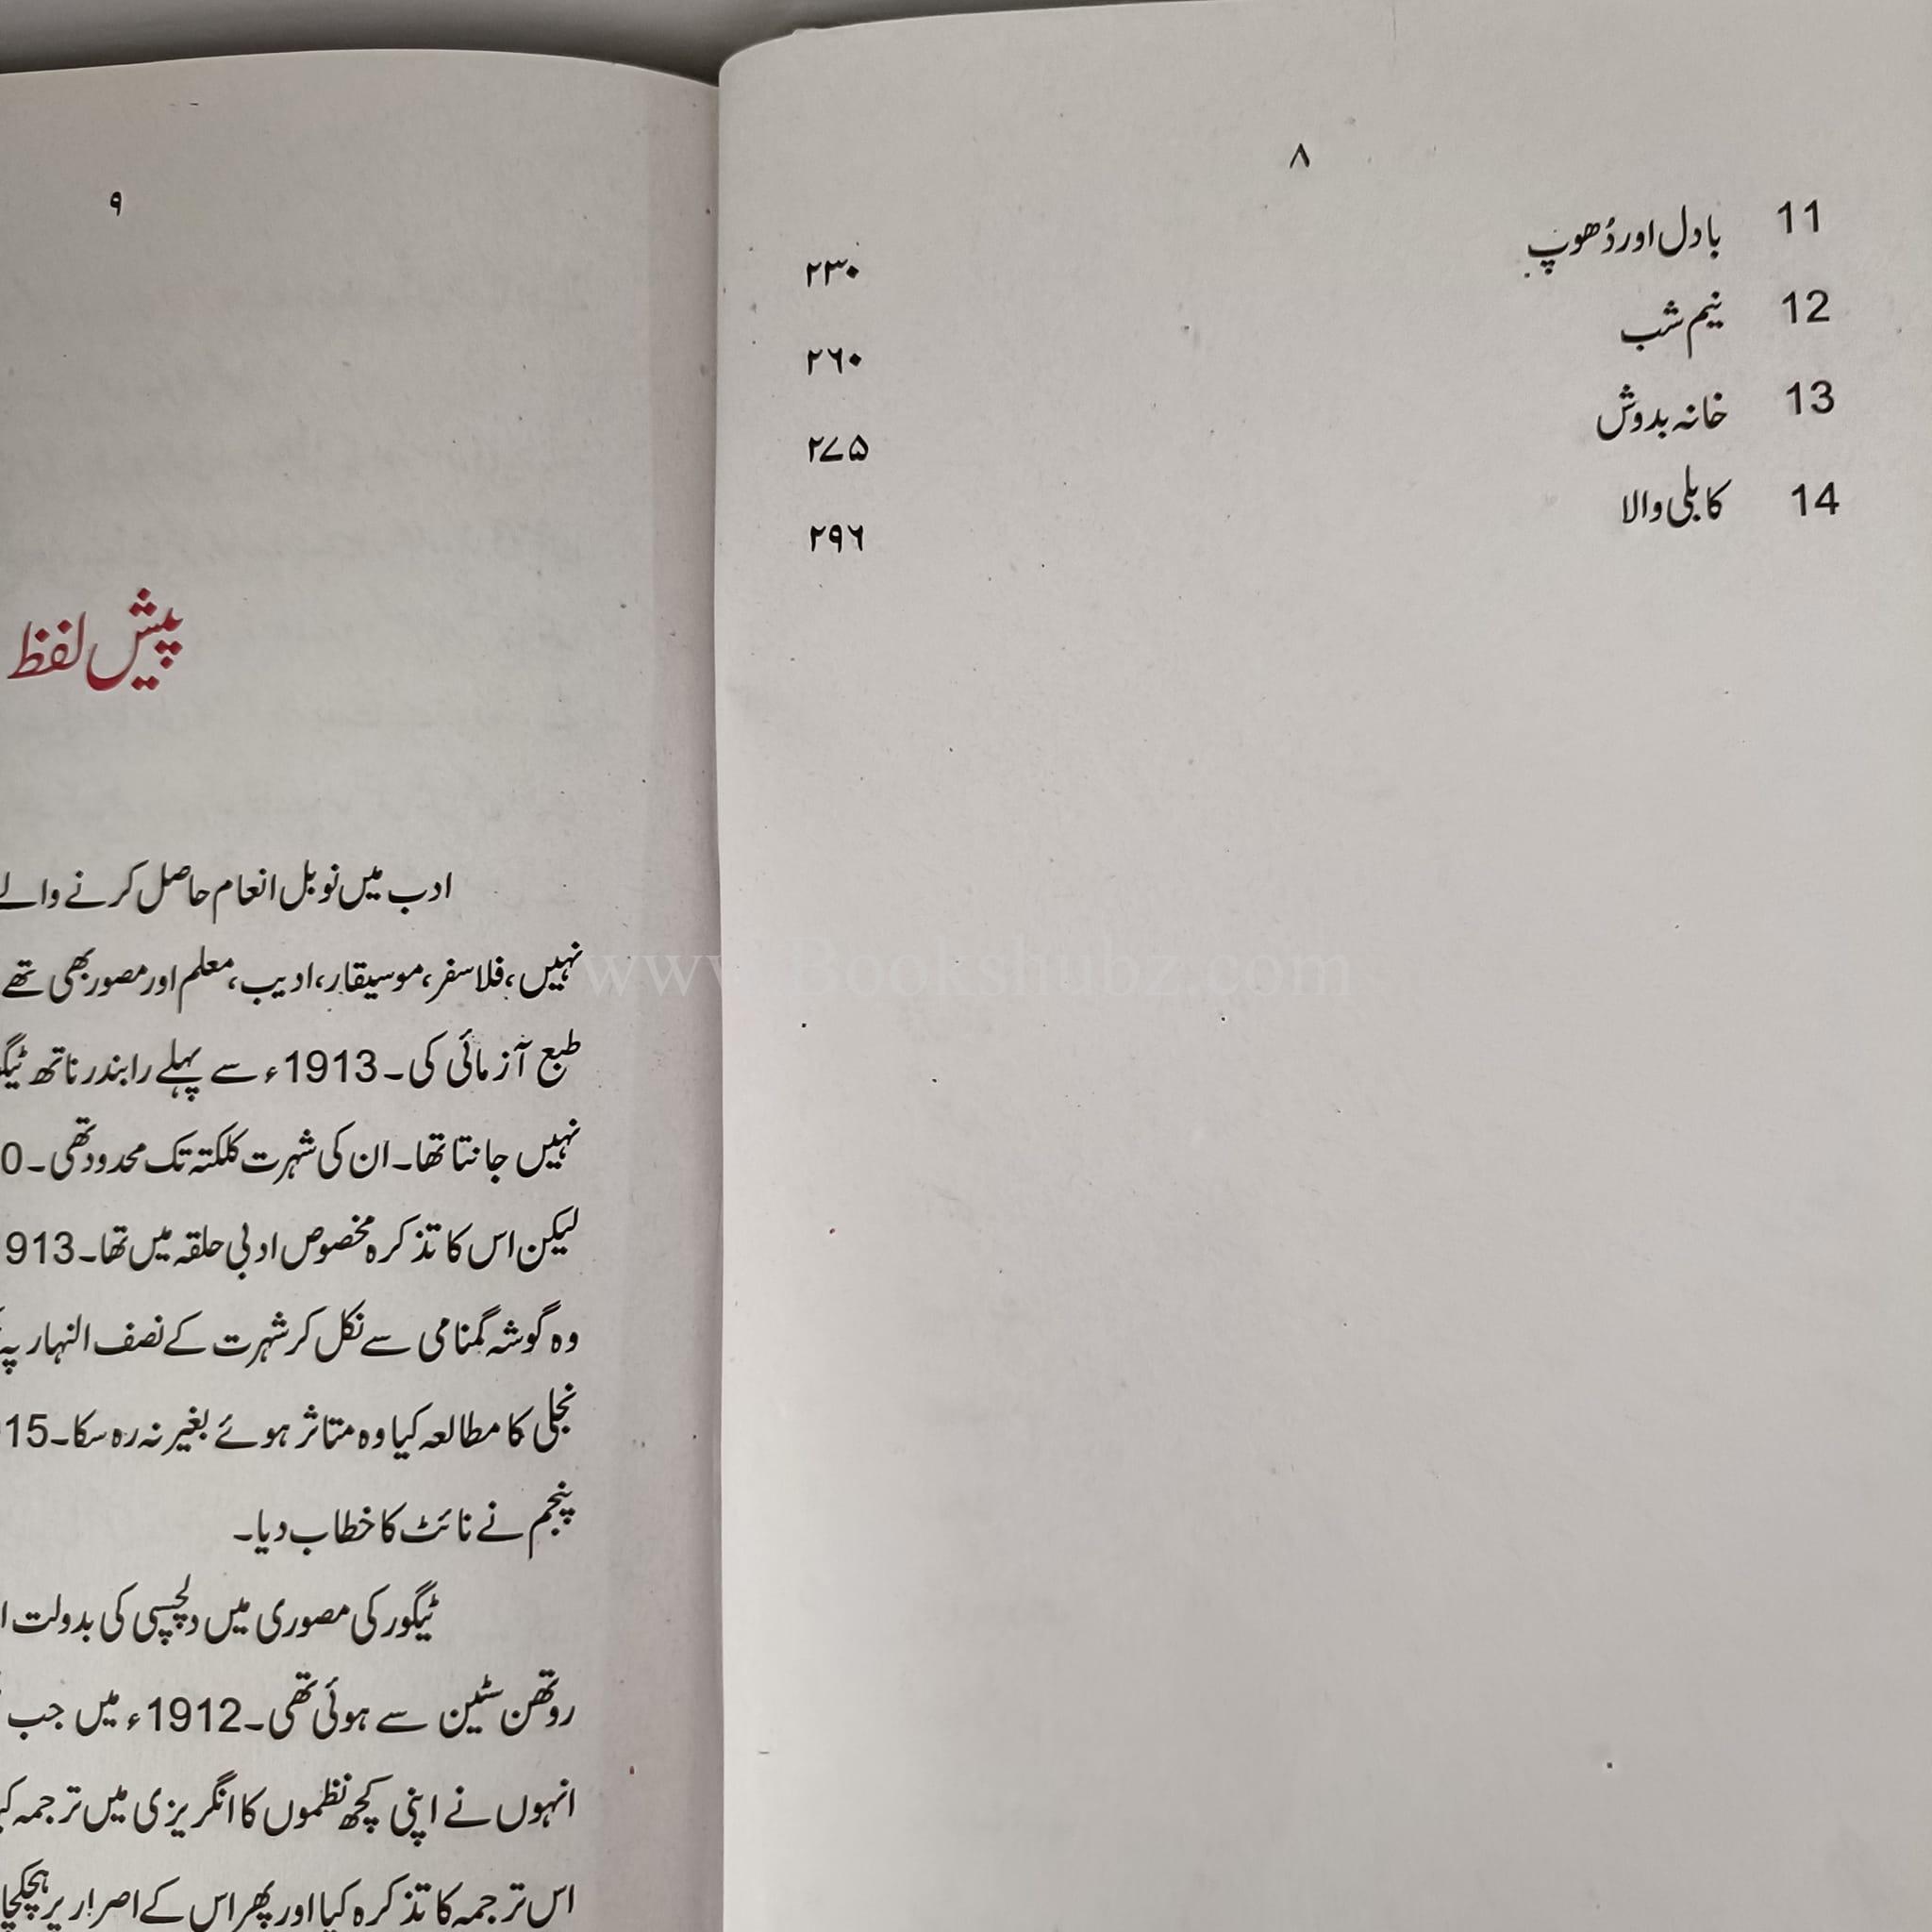 ٨
11 بادل اور دُھوپ ۲۳۰
12 نیم شب ۲۶۰
13 خانہ بدوش ۲۷۵
14 کابلی والا ۲۹۶
۹
پیش لفظ
ادب میں نوبل انعام حاصل کرنے والے
نہیں، فلاسفر، موسیقار، ادیب، معلم اور مصور بھی تھے
طبع آزمائی کی۔ 1913ء سے پہلے رابندر ناتھ
نہیں جانتا تھا۔ ان کی شہرت کلکتہ تک محدود تھی۔
لیکن اس کا تذکرہ مخصوص ادبی حلقہ میں تھا۔ 913
وہ گوشہ گمنامی سے نکل کر شہرت کے نصف النہار پہ
نجلی کا مطالعہ کیا وہ متاثر ہوئے بغیر نہ رہ سکا۔ 15
پنجم نے نائٹ کا خطاب دیا۔
ٹیگور کی مصوری میں دلچسپی کی بدولت
روتھن سٹین سے ہوئی تھی۔ 1912ء میں جب
انہوں نے اپنی کچھ نظموں کا انگریزی میں ترجمہ
اس ترجمہ کا تذکرہ کیا اور پھر اس کے اصرار پر
www.Bookshubz.com